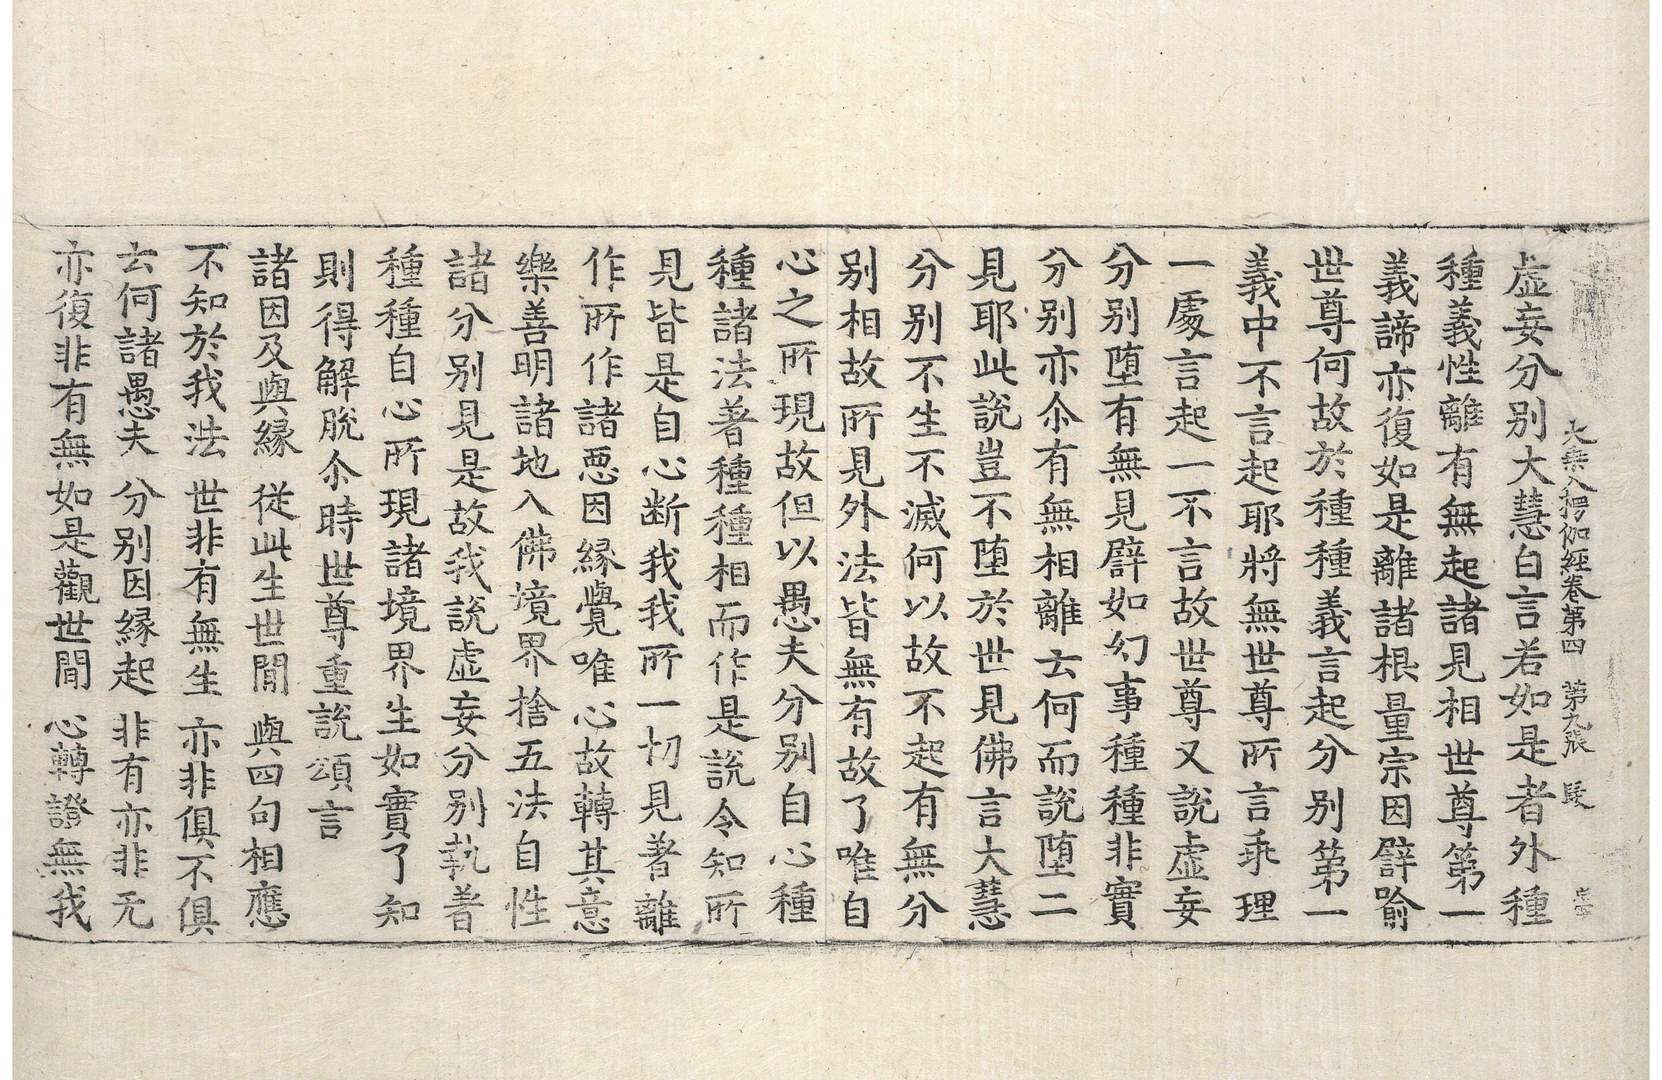 大乘入楞伽經卷第四 第九張
虛妄分別大慧白言若如是者外種
種義性離有無起諸見相世尊第一
義諦亦復如是離諸根量宗因譬喻
世尊何故於種種義言起分別第一
義中不言起耶將無世尊所言乖理
一處言起一不言故世尊又說虛妄
分別堕有無見譬如幻事種種非實
分別亦尒有無相離云何而說堕二
見耶此說豈不堕於世見佛言大慧
分別不生不滅何以故不起有無分
別相故所見外法皆無有故了唯自
心之所現故但以愚夫分別自心種
種諸法著種種相而作是說令知所
見皆是自心断我我所一切見著離
作所作諸惡因緣覺唯心故轉其意
樂善明諸地入佛境界捨五法自性
諸分別見是故我說虛妄分別執著
種種自心所現諸境界生如實了知
則得解脫尒時世尊重說頌言
諸因及與緣 從此生世閒 與四句相應
不知於我法 世非有無生 亦非俱不俱
云何諸愚夫 分別因緣起 非有亦非无
亦復非有無如是觀世閒 心轉證無我